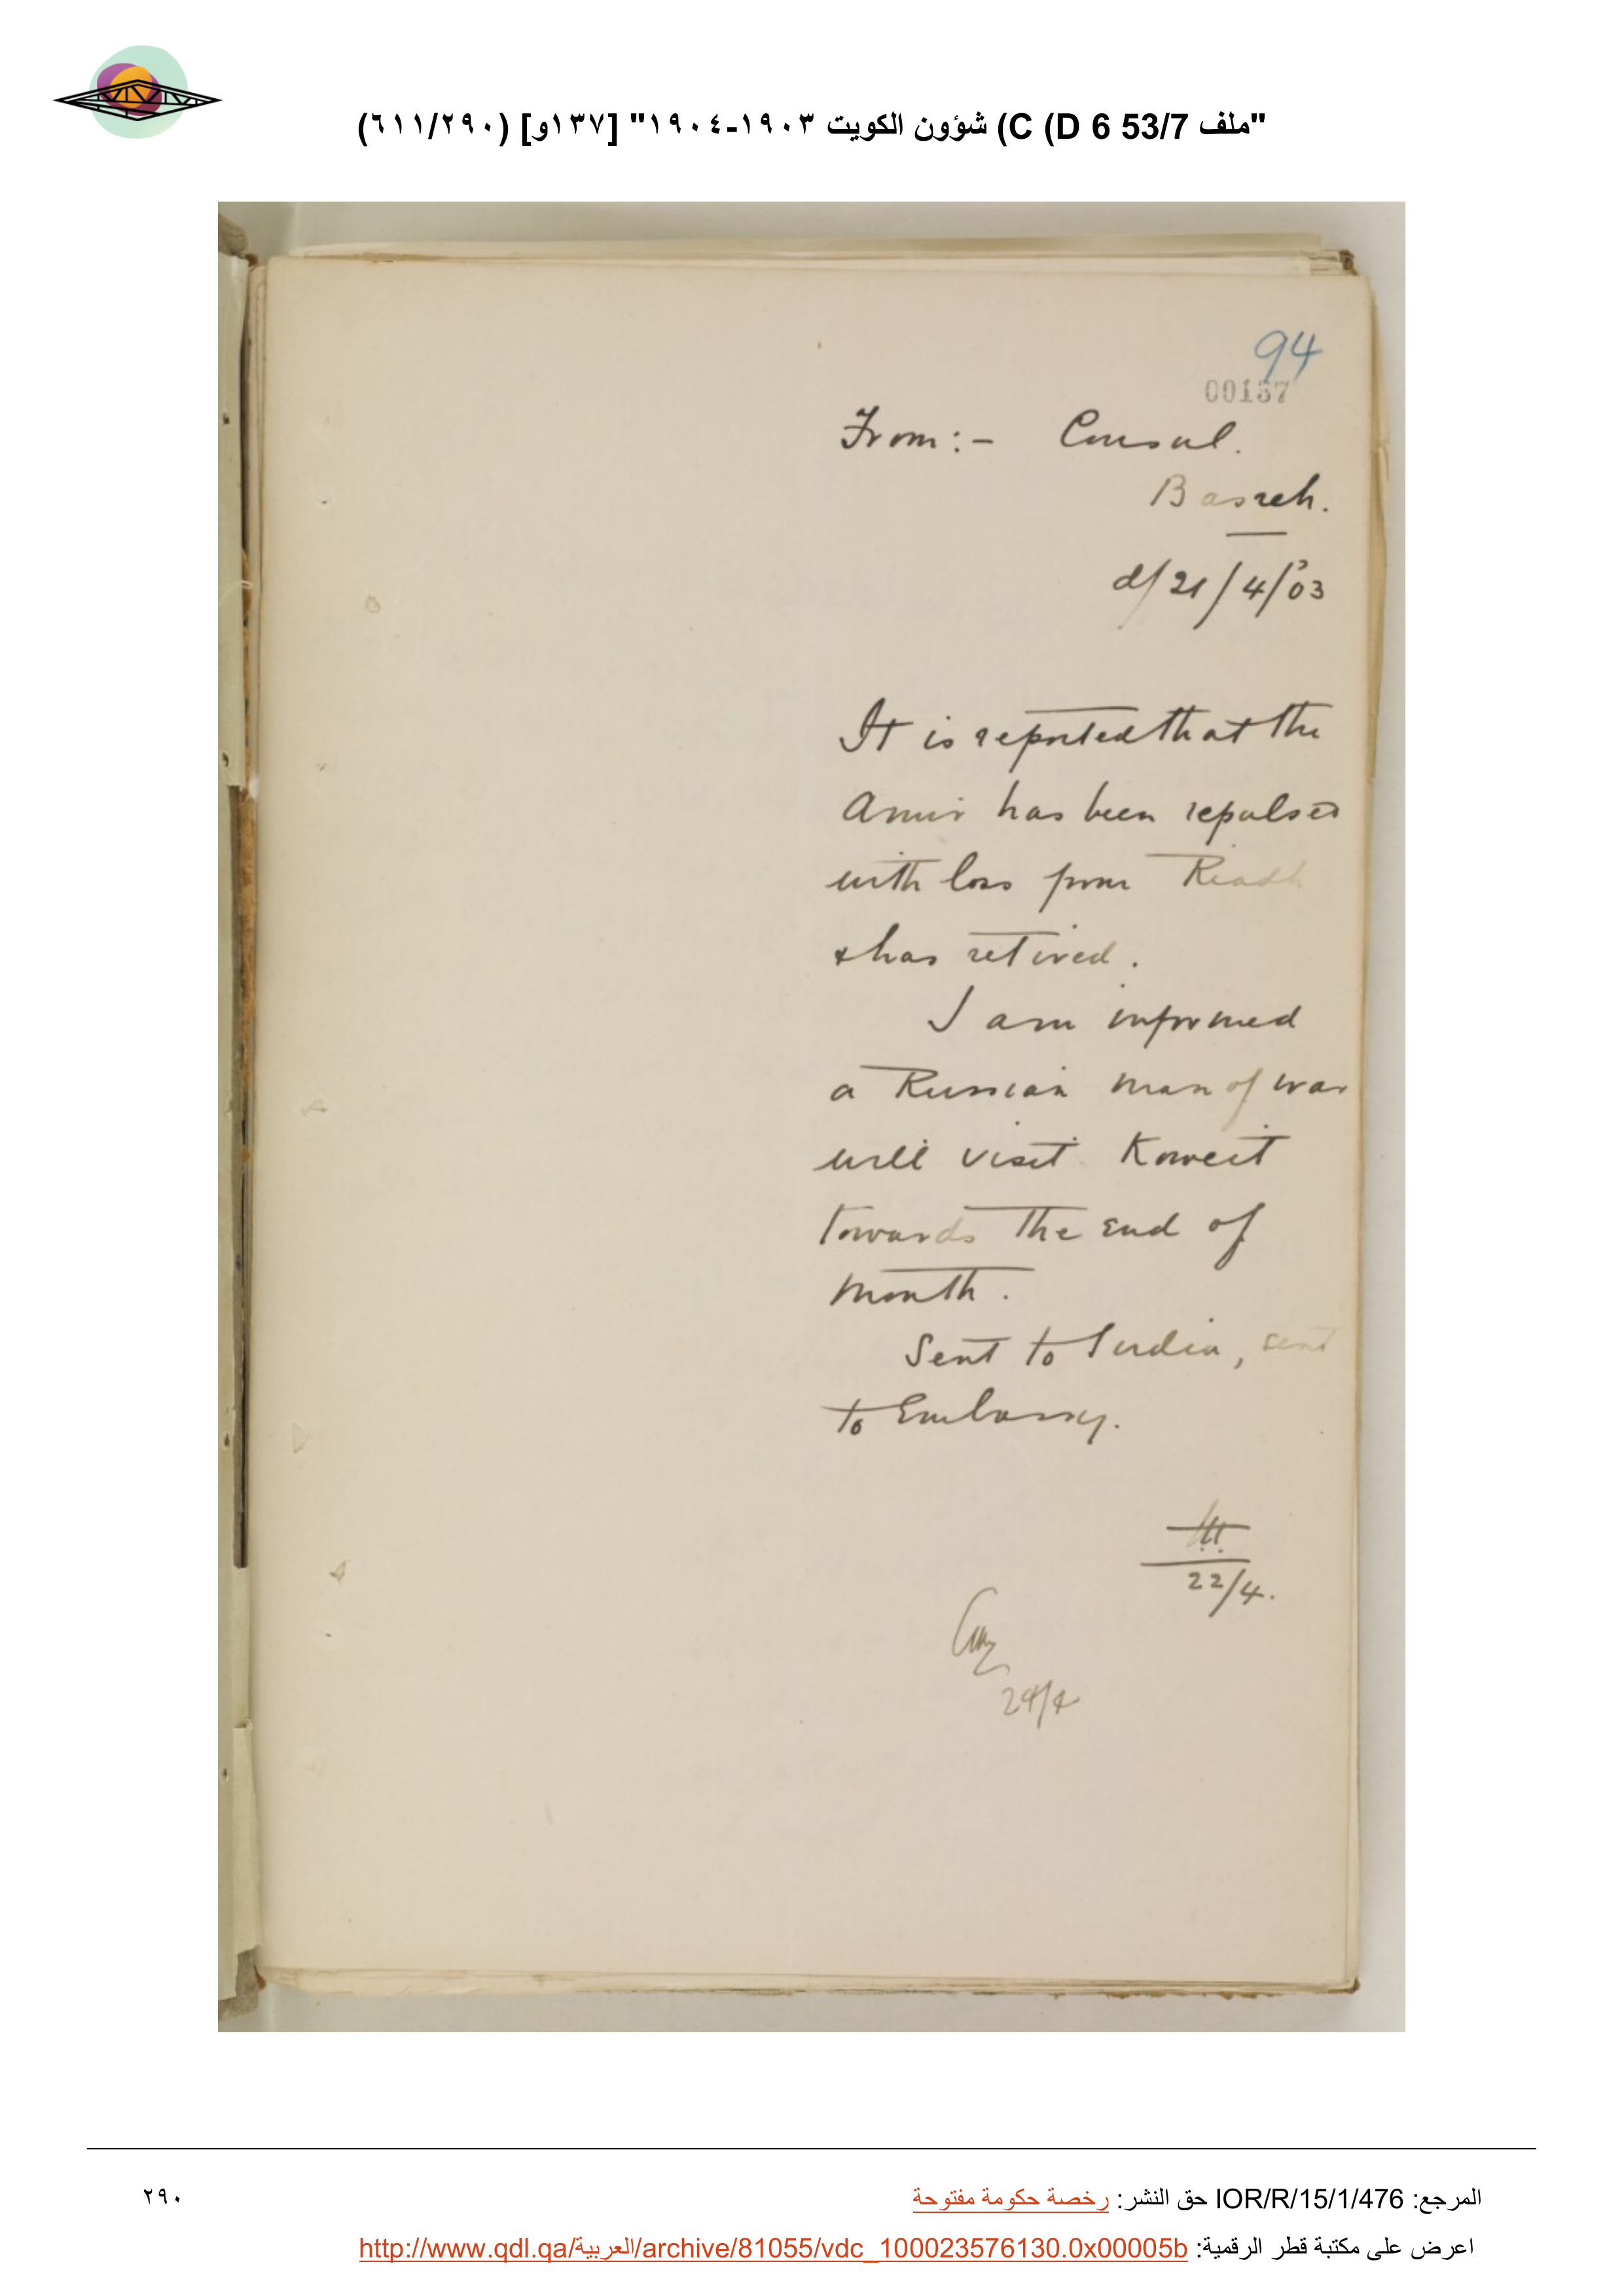 "ملف 53/7 C (D 6) شؤون الكويت ١٩٠٣-١٩٠٤" [١٣٧و] (٦١١/٢٩٠)
94
00137
From:- Consul.
Basreh.
d/21/4/'03
It is reported that the
Amir has been repulsed
with loss from Riadh
& has retired.
I am informed
a Russian man of war
will visit Koweit
towards the end of
month.
Sent to India, sent
to Embassy.
22/4.
24/4
المرجع: IOR/R/15/1/476 حق النشر: رخصة حكومة مفتوحة
٢٩٠
اعرض على مكتبة قطر الرقمية: http://www.qdl.qa/العربية/archive/81055/vdc_100023576130.0x00005b